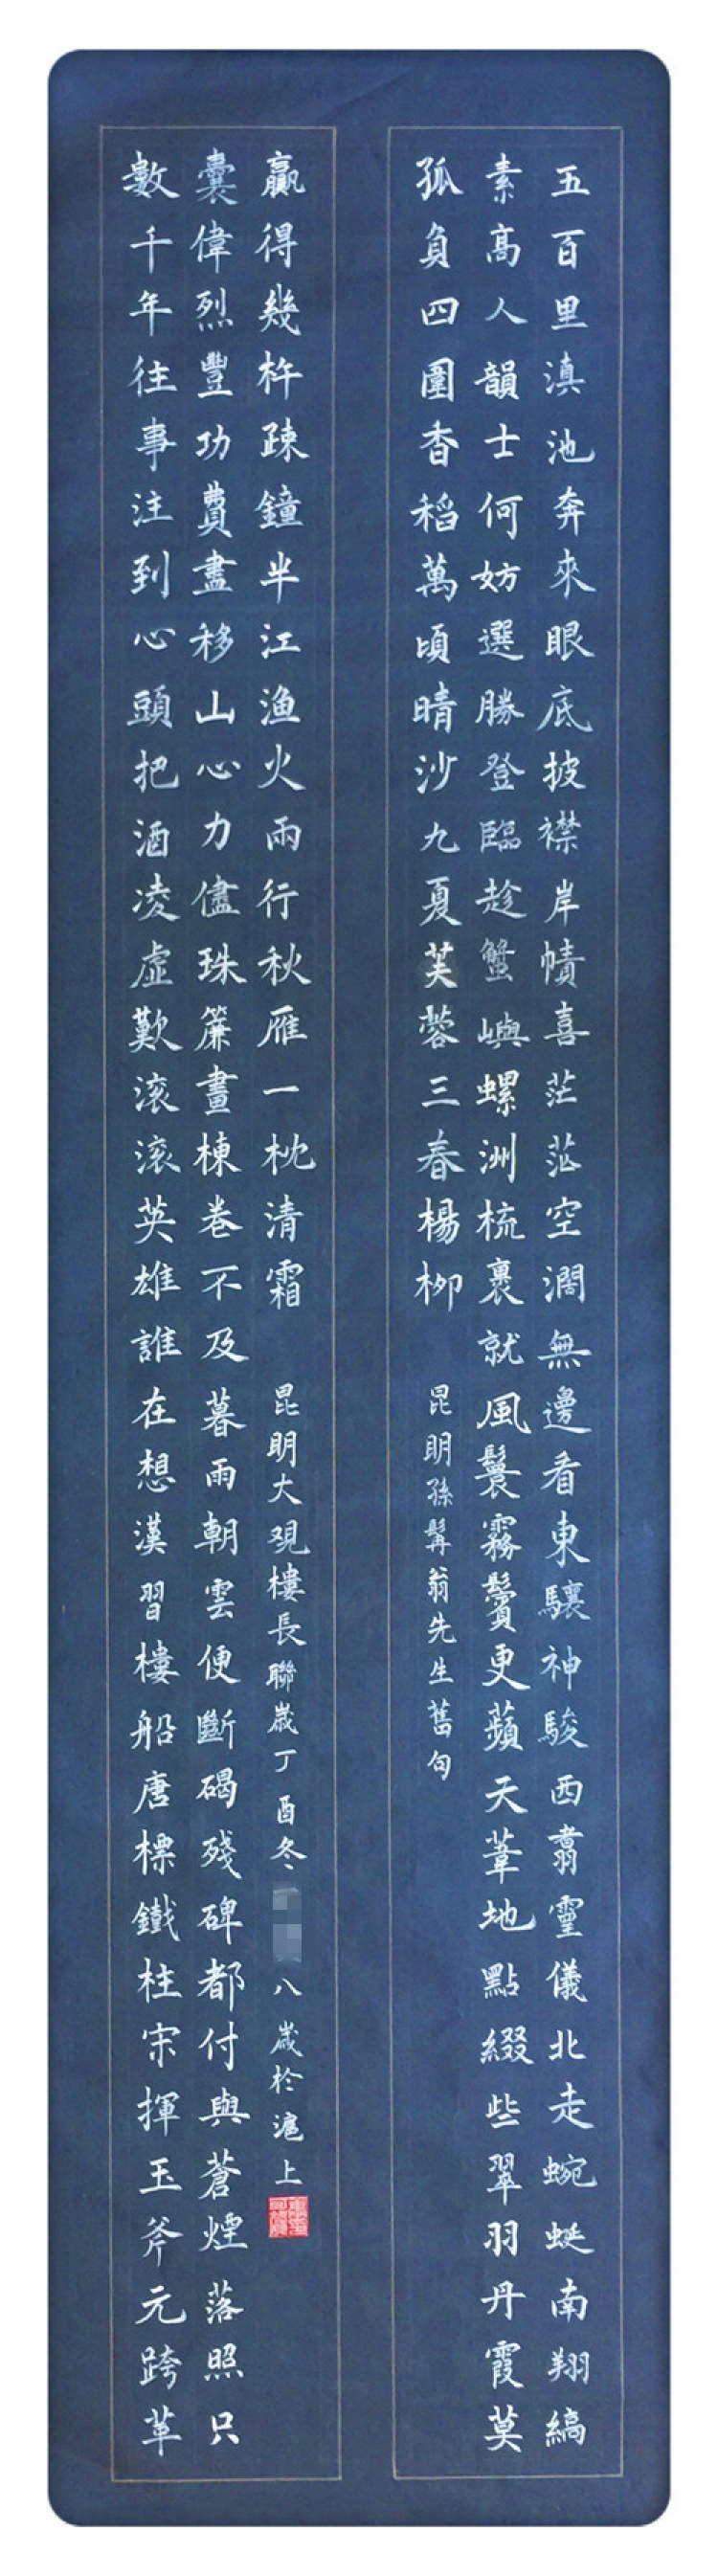 五百里滇池奔來眼底披襟岸幘喜茫茫空濶無邊看東驤神駿西翥靈儀北走蜿蜒南翔縞
素髙人韻士何妨選勝登臨趁蟹嶼螺洲梳裹就風鬟霧鬢更蘋天葦地點綴些翠羽丹霞莫
孤負四圍香稻萬頃晴沙九夏芙蓉三春楊柳
昆明孫髯翁先生舊句
數千年往事注到心頭把酒凌虛歎滚滚英雄誰在想漢習樓船唐標鐵柱宋揮玉斧元跨革
囊偉烈豐功費盡移山心力儘珠簾畫棟卷不及暮雨朝雲便斷碣殘碑都付與蒼煙落照只
贏得幾杵疎鐘半江漁火兩行秋雁一枕清霜
昆明大覌樓長聯歲丁酉冬 八歲於滬上